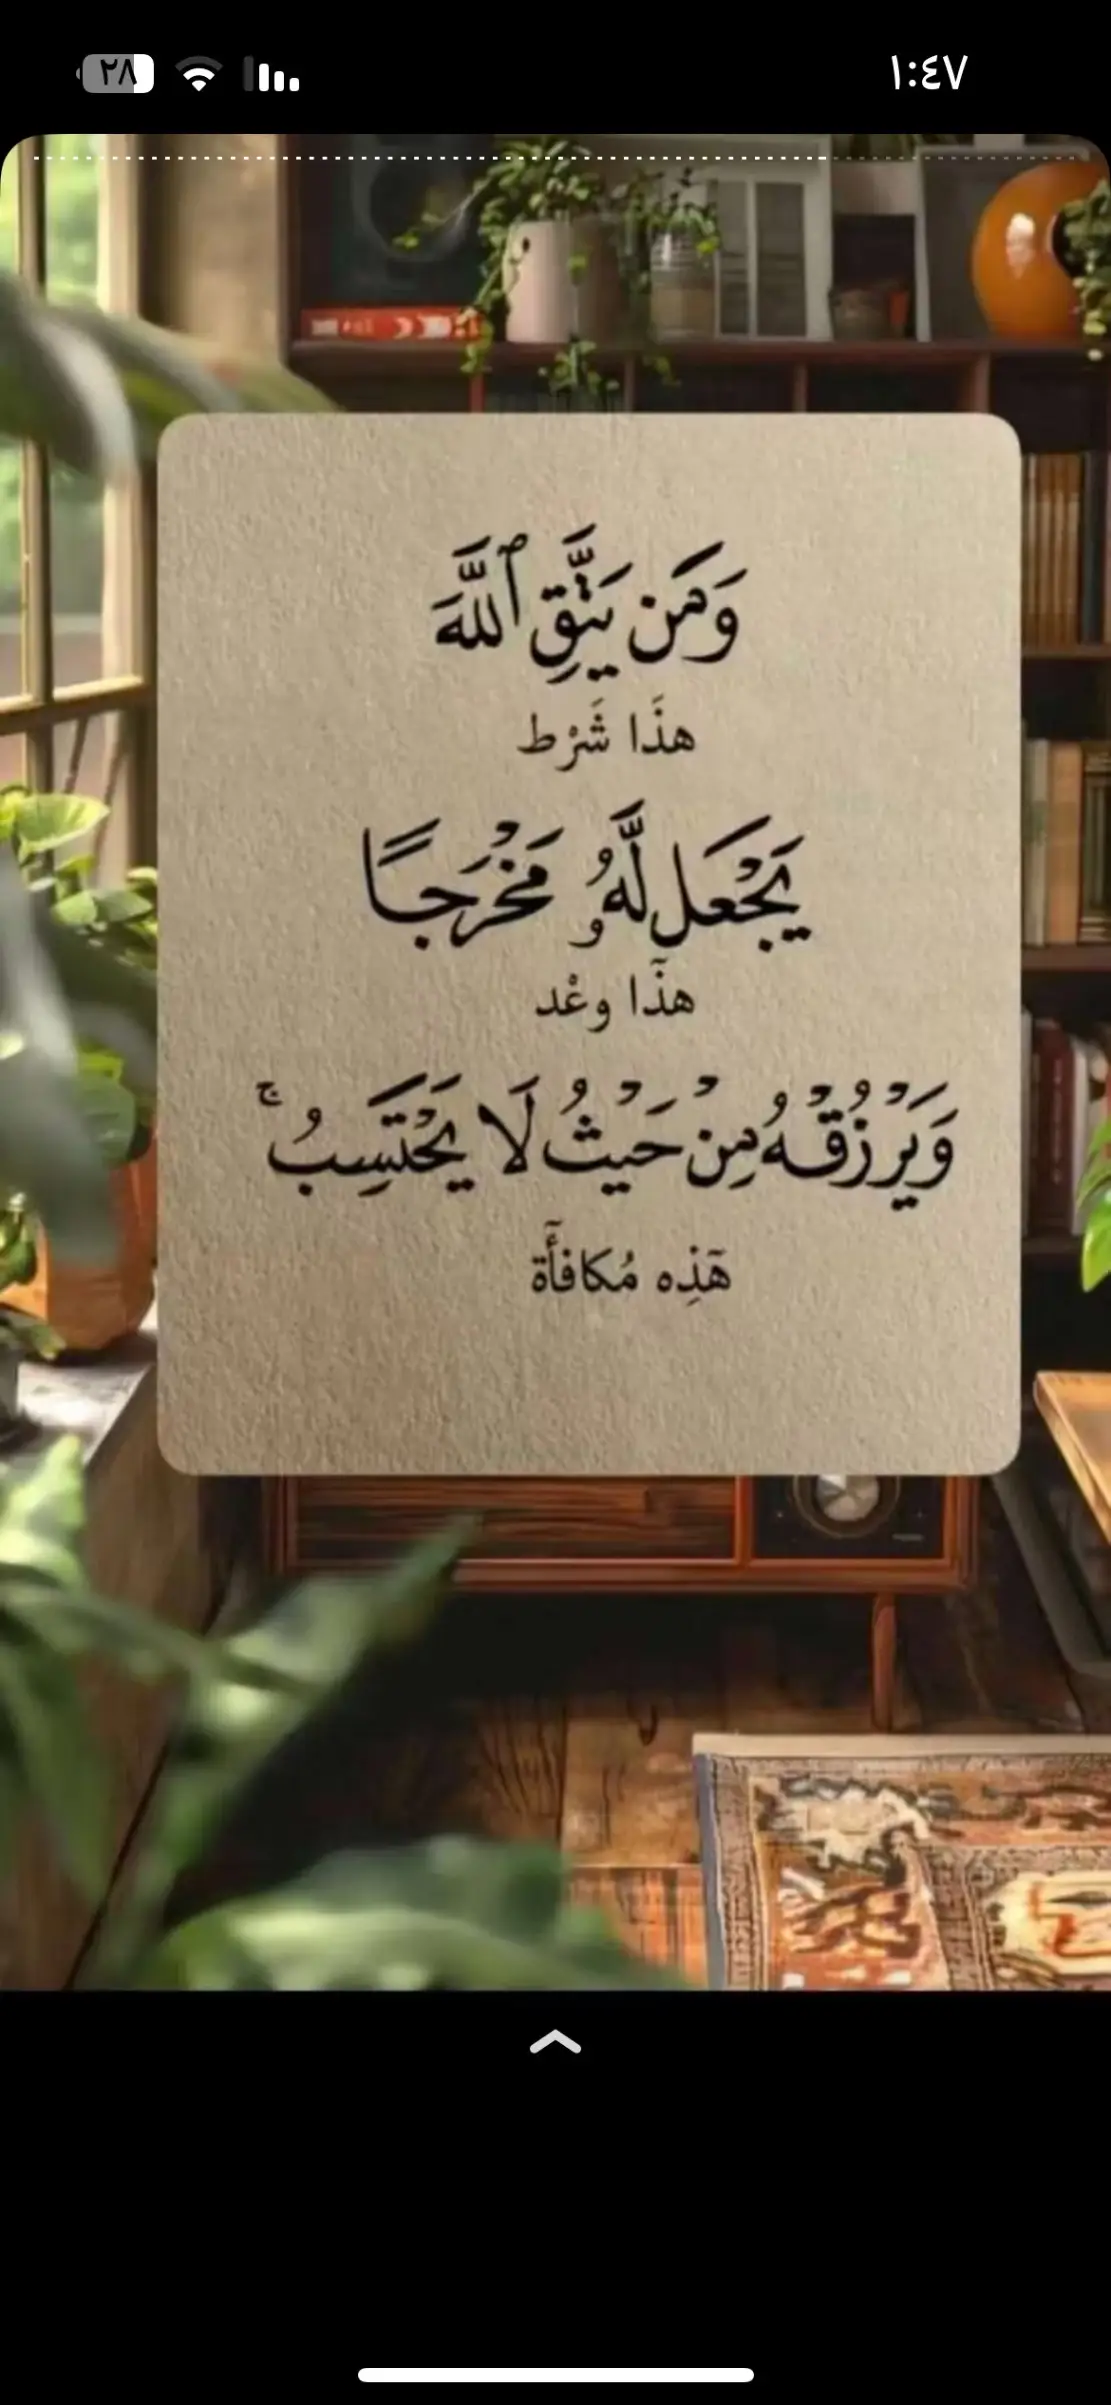 ١:٤٧
٢٨
وَمَن يَتَّقِ ٱللَّهَ
هذَا شَرْط
يَجْعَل لَّهُۥ مَخْرَجًا
هذَا وعْد
وَيَرْزُقْهُ مِنْ حَيْثُ لَا يَحْتَسِبُ ۚ
هَذِه مُكافأَة